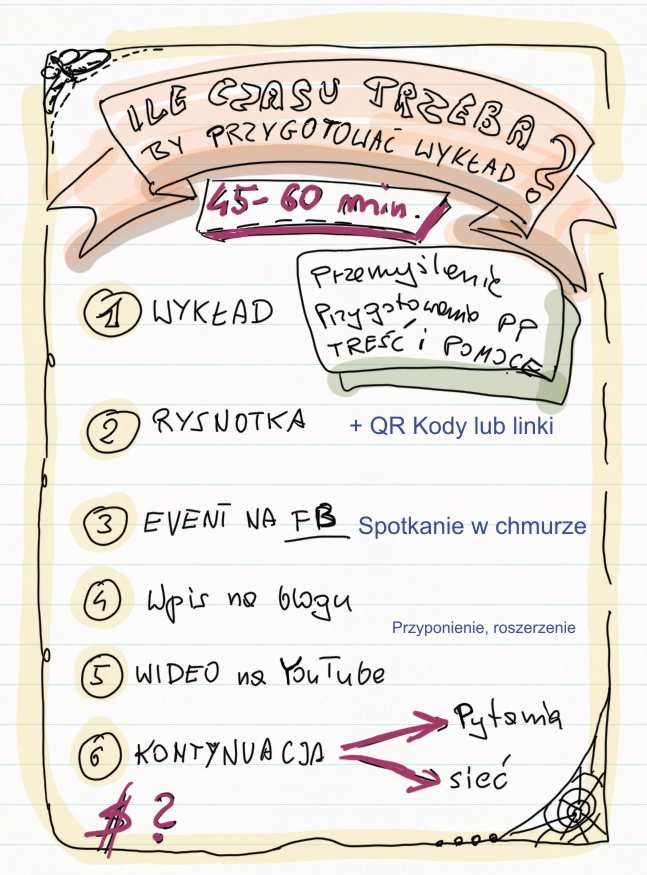 ILE CZASU TRZEBA
BY PRZYGOTOWAĆ WYKŁAD?
45-60 min.
Przemyślenie
Przygotowanie PP
TREŚĆ i POMOCE
1 WYKŁAD
2 RYSNOTKA + QR Kody lub linki
3 EVENT NA FB Spotkanie w chmurze
4 Wpis na blogu
Przyponienie, roszerzenie
5 WIDEO na YouTube
6 KONTYNUACJA
Pytania
sieć
$ ?